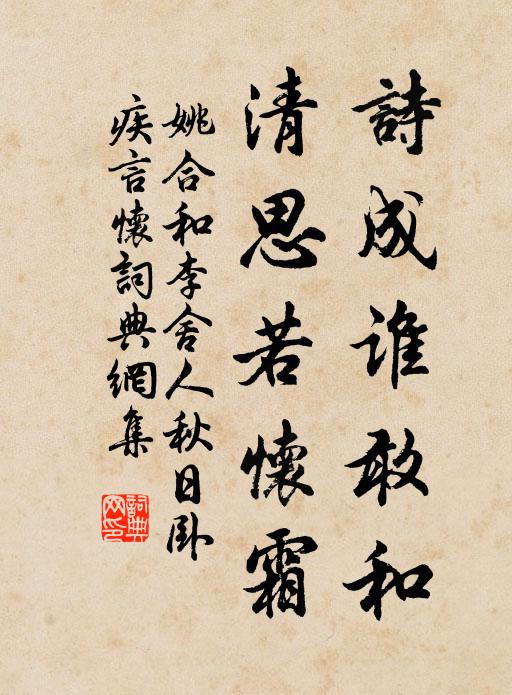 詩成誰敢和
清思若懷霜
姚合和李舍人秋日卧
疾言懷詞典網集
詞典
网印